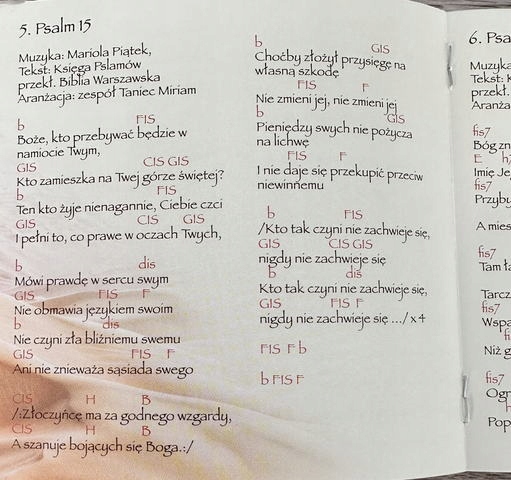 5. Psalm 15
Muzyka: Mariola Piątek,
Tekst: Księga Pslamów
przekł. Biblia Warszawska
Aranżacja: zespół Taniec Miriam
b FIS
Boże, kto przebywać będzie w
namiocie Twym,
GIS CIS GIS
Kto zamieszka na Twej górze świętej?
b FIS
Ten kto żyje nienagannie, Ciebie czci
GIS CIS GIS
I pełni to, co prawe w oczach Twych,
b dis
Mówi prawdę w sercu swym
GIS FIS F
Nie obmawia językiem swoim
b dis
Nie czyni zła bliźniemu swemu
GIS FIS F
Ani nie znieważa sąsiada swego
CIS H B
/:Złoczyńcę ma za godnego wzgardy,
CIS H B
A szanuje bojących się Boga.:/
b GIS
Choćby złożył przysięgę na
własną szkodę
FIS F
Nie zmieni jej, nie zmieni jej
b GIS
Pieniędzy swych nie pożycza
na lichwę
FIS F
I nie daje się przekupić przeciw
niewinnemu
b FIS
/Kto tak czyni nie zachwieje się,
GIS CIS GIS
nigdy nie zachwieje się
b dis
Kto tak czyni nie zachwieje się,
GIS FIS F
nigdy nie zachwieje się .../ x4
FIS F b
b FIS F
6. Psa
Muzyka
Tekst: K
przekł.
Aranża
fis7
Bóg zn
E h7
Imię Je
fis7
Przyby
A mies
fis7
Tam ła
Tarcz
fis7
Wspa
fi
Niż g
fis7
Ogr
h
Pop